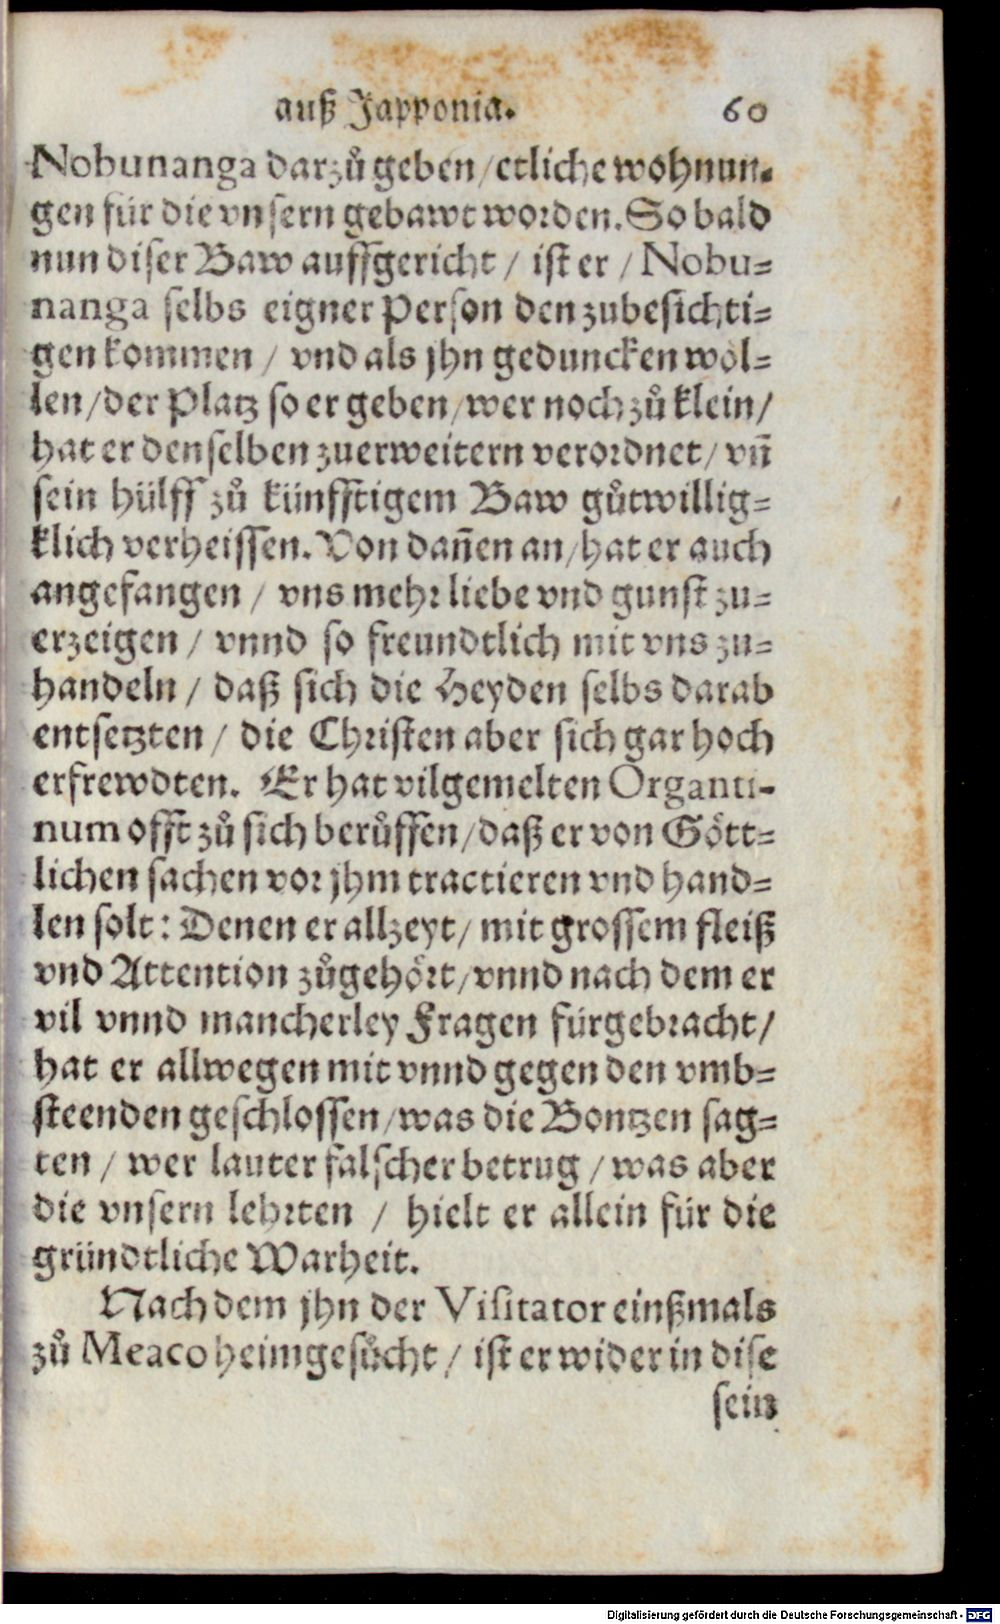 auß Japponia. 60
Nobunanga darzů geben / etliche wohnun-
gen für die vnsern gebawt worden. So bald
nun diser Baw auffgericht / ist er / Nobu-
nanga selbs eigner Person den zubesichti-
gen kommen / vnd als jhn geduncken wöl-
len / der Platz so er geben / wer noch zů klein /
hat er denselben zuerweitern verordnet / vñ
sein hülff zů künfftigem Baw gůtwillig-
klich verheissen. Von dañen an / hat er auch
angefangen / vns mehr liebe vnd gunst zu-
erzeigen / vnnd so freundtlich mit vns zu-
handeln / daß sich die Heyden selbs darab
entsetzten / die Christen aber sich gar hoch
erfrewdten. Er hat vilgemelten Organti-
num offt zů sich berůffen / daß er von Gött-
lichen sachen vor jhm tractieren vnd hand-
len solt: Denen er allzeyt / mit grossem fleiß
vnd Attention zůgehört / vnnd nach dem er
vil vnnd mancherley Fragen fürgebracht /
hat er allwegen mit vnnd gegen den vmb-
steenden geschlossen / was die Bontzen sag-
ten / wer lauter falscher betrug / was aber
die vnsern lehrten / hielt er allein für die
gründtliche Warheit.
Nach dem jhn der Visitator einßmals
zů Meaco heimgesůcht / ist er wider in dise
sein
Digitalisierung gefördert durch die Deutsche Forschungsgemeinschaft - DFG